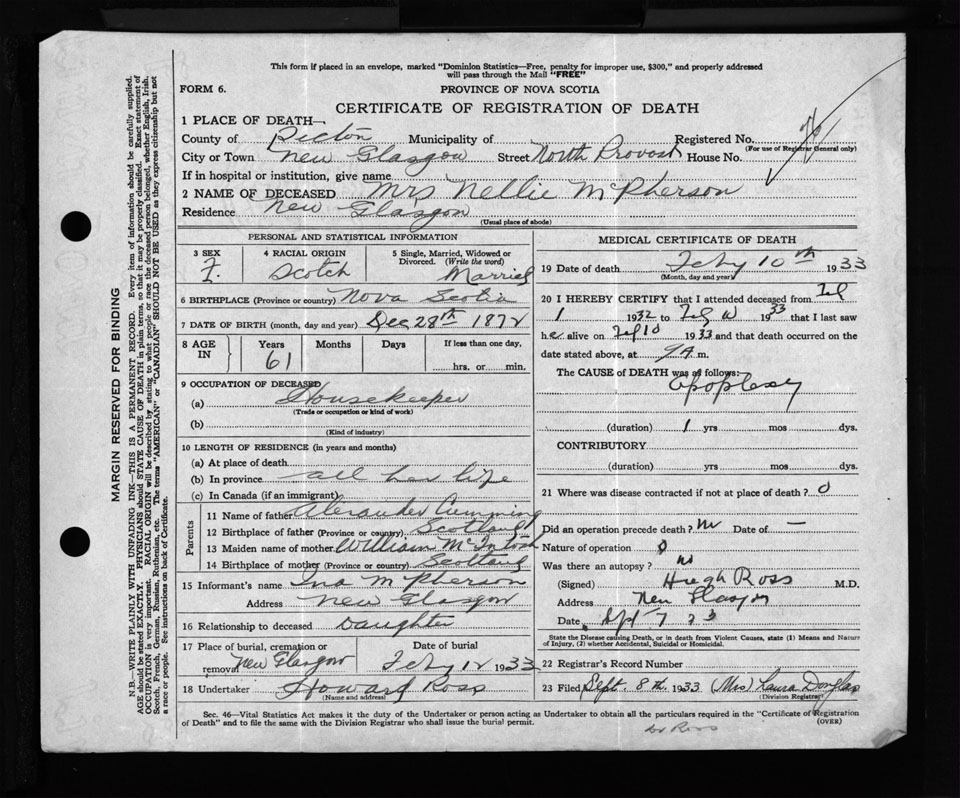 This form if placed in an envelope, marked "Dominion Statistics—Free, penalty for improper use, $300," and properly addressed
will pass through the Mail "FREE"
FORM 6.
PROVINCE OF NOVA SCOTIA
CERTIFICATE OF REGISTRATION OF DEATH
1 PLACE OF DEATH—
County of Pictou Municipality of Registered No.
(For use of Registrar General only)
City or Town New Glasgow Street North Provost House No.
If in hospital or institution, give name
2 NAME OF DECEASED Mrs Nellie McPherson
Residence New Glasgow
(Usual place of abode)
PERSONAL AND STATISTICAL INFORMATION
3 SEX F. 4 RACIAL ORIGIN Scotch 5 Single, Married, Widowed or Divorced. (Write the word) Married
6 BIRTHPLACE (Province or country) Nova Scotia
7 DATE OF BIRTH (month, day and year) Dec 28th 1872
8 AGE IN Years 61 Months Days If less than one day, hrs. or min.
9 OCCUPATION OF DECEASED
(a) Housekeeper
(Trade or occupation or kind of work)
(b)
(Kind of industry)
10 LENGTH OF RESIDENCE (in years and months)
(a) At place of death
(b) In province all her life
(c) In Canada (if an immigrant)
Parents
11 Name of father Alexander Cumming
12 Birthplace of father (Province or country) Scotland
13 Maiden name of mother William McIntosh
14 Birthplace of mother (Province or country) Scotland
15 Informant's name Ina McPherson
Address New Glasgow
16 Relationship to deceased Daughter
17 Place of burial, cremation or removal New Glasgow Date of burial Feby 12 1933
18 Undertaker Howard Ross
MEDICAL CERTIFICATE OF DEATH
19 Date of death Feby 10th 1933
(Month, day and year)
20 I HEREBY CERTIFY that I attended deceased from Feb
1 1932 to Feb 10 1933 that I last saw
her alive on Feb 10 1933 and that death occurred on the
date stated above, at 9 A m.
The CAUSE of DEATH was as follows:
Apoplexy
(duration) 1 yrs mos dys.
CONTRIBUTORY
(duration) yrs mos dys.
21 Where was disease contracted if not at place of death? 0
Did an operation precede death? no Date of —
Nature of operation 0
Was there an autopsy? no
(Signed) Hugh Ross M.D.
Address New Glasgow
Date Sept 7 33
State the Disease causing Death, or in death from Violent Causes, state (1) Means and Nature
of Injury, (2) whether Accidental, Suicidal or Homicidal.
22 Registrar's Record Number
23 Filed Sept. 8th. 1933 (Mrs) Laura Douglas
(Division Registrar)
Sec. 46—Vital Statistics Act makes it the duty of the Undertaker or person acting as Undertaker to obtain all the particulars required in the "Certificate of Registration
of Death" and to file the same with the Division Registrar who shall issue the burial permit.
(OVER)
Dr Ross
MARGIN RESERVED FOR BINDING
N.B.—WRITE PLAINLY WITH UNFADING INK—THIS IS A PERMANENT RECORD. Every item of information should be carefully supplied.
AGE should be stated EXACTLY. PHYSICIANS should STATE CAUSE OF DEATH in plain terms, so that it may be properly classified. Exact statement of
OCCUPATION is very important. RACIAL ORIGIN will be described by stating to what people or race the deceased person belonged, whether English, Irish,
Scotch, French, German, Russian, Ruthenian, etc. The terms "AMERICAN" or "CANADIAN" SHOULD NOT BE USED as they express citizenship but not
a race or people. See instructions on back of Certificate.